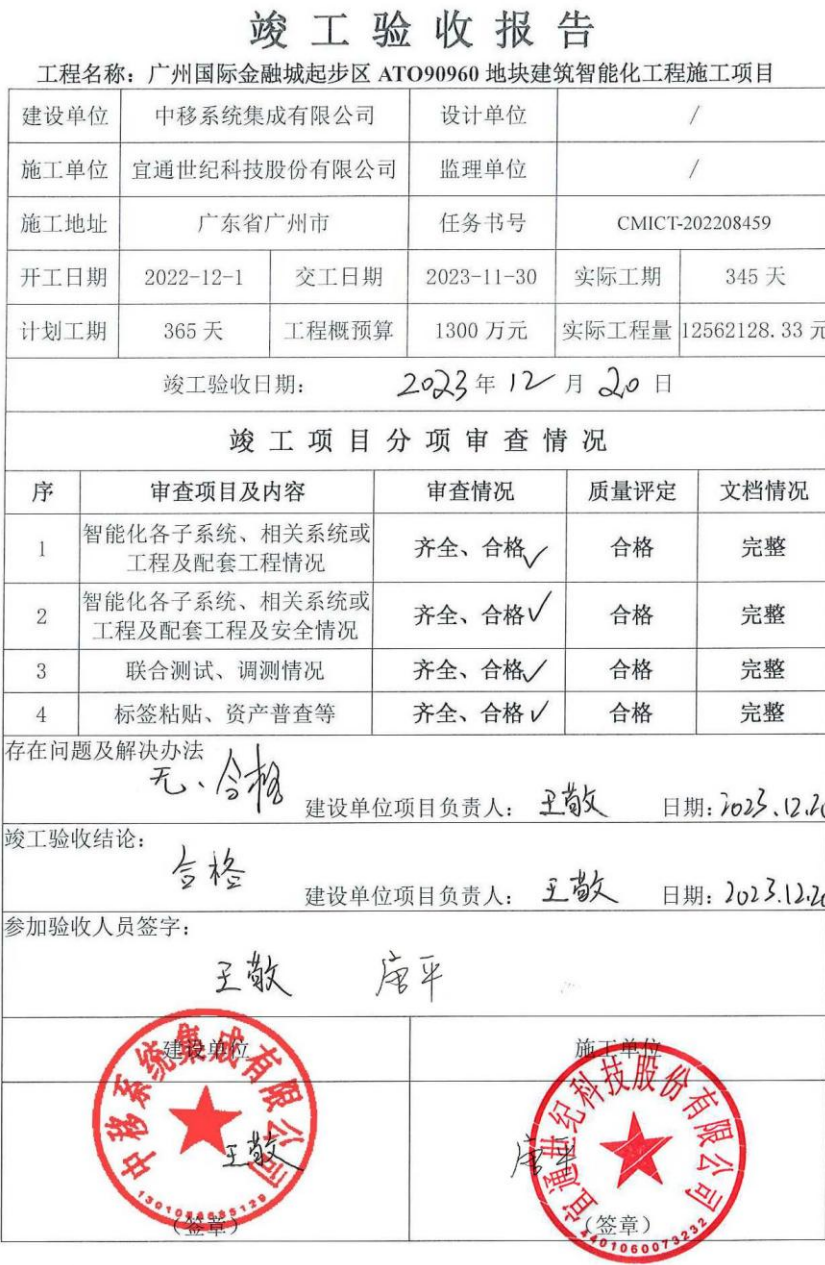 竣工验收报告
工程名称：广州国际金融城起步区 ATO90960 地块建筑智能化工程施工项目
建设单位 中移系统集成有限公司 设计单位 /
施工单位 宜通世纪科技股份有限公司 监理单位 /
施工地址 广东省广州市 任务书号 CMICT-202208459
开工日期 2022-12-1 交工日期 2023-11-30 实际工期 345 天
计划工期 365 天 工程概预算 1300 万元 实际工程量 12562128.33 元
竣工验收日期： 2023 年 12 月 20 日
竣工项目分项审查情况
序 审查项目及内容 审查情况 质量评定 文档情况
1 智能化各子系统、相关系统或
工程及配套工程情况 齐全、合格✓ 合格 完整
2 智能化各子系统、相关系统或
工程及配套工程及安全情况 齐全、合格✓ 合格 完整
3 联合测试、调测情况 齐全、合格✓ 合格 完整
4 标签粘贴、资产普查等 齐全、合格✓ 合格 完整
存在问题及解决办法
无、合格
建设单位项目负责人： 王敬 日期：2023.12.20
竣工验收结论：
合格
建设单位项目负责人： 王敬 日期：2023.12.20
参加验收人员签字：
王敬 唐平
建设单位 施工单位
中移系统集成有限公司
王敬
（签章）
宜通世纪科技股份有限公司
唐平
（签章）
4401060073232